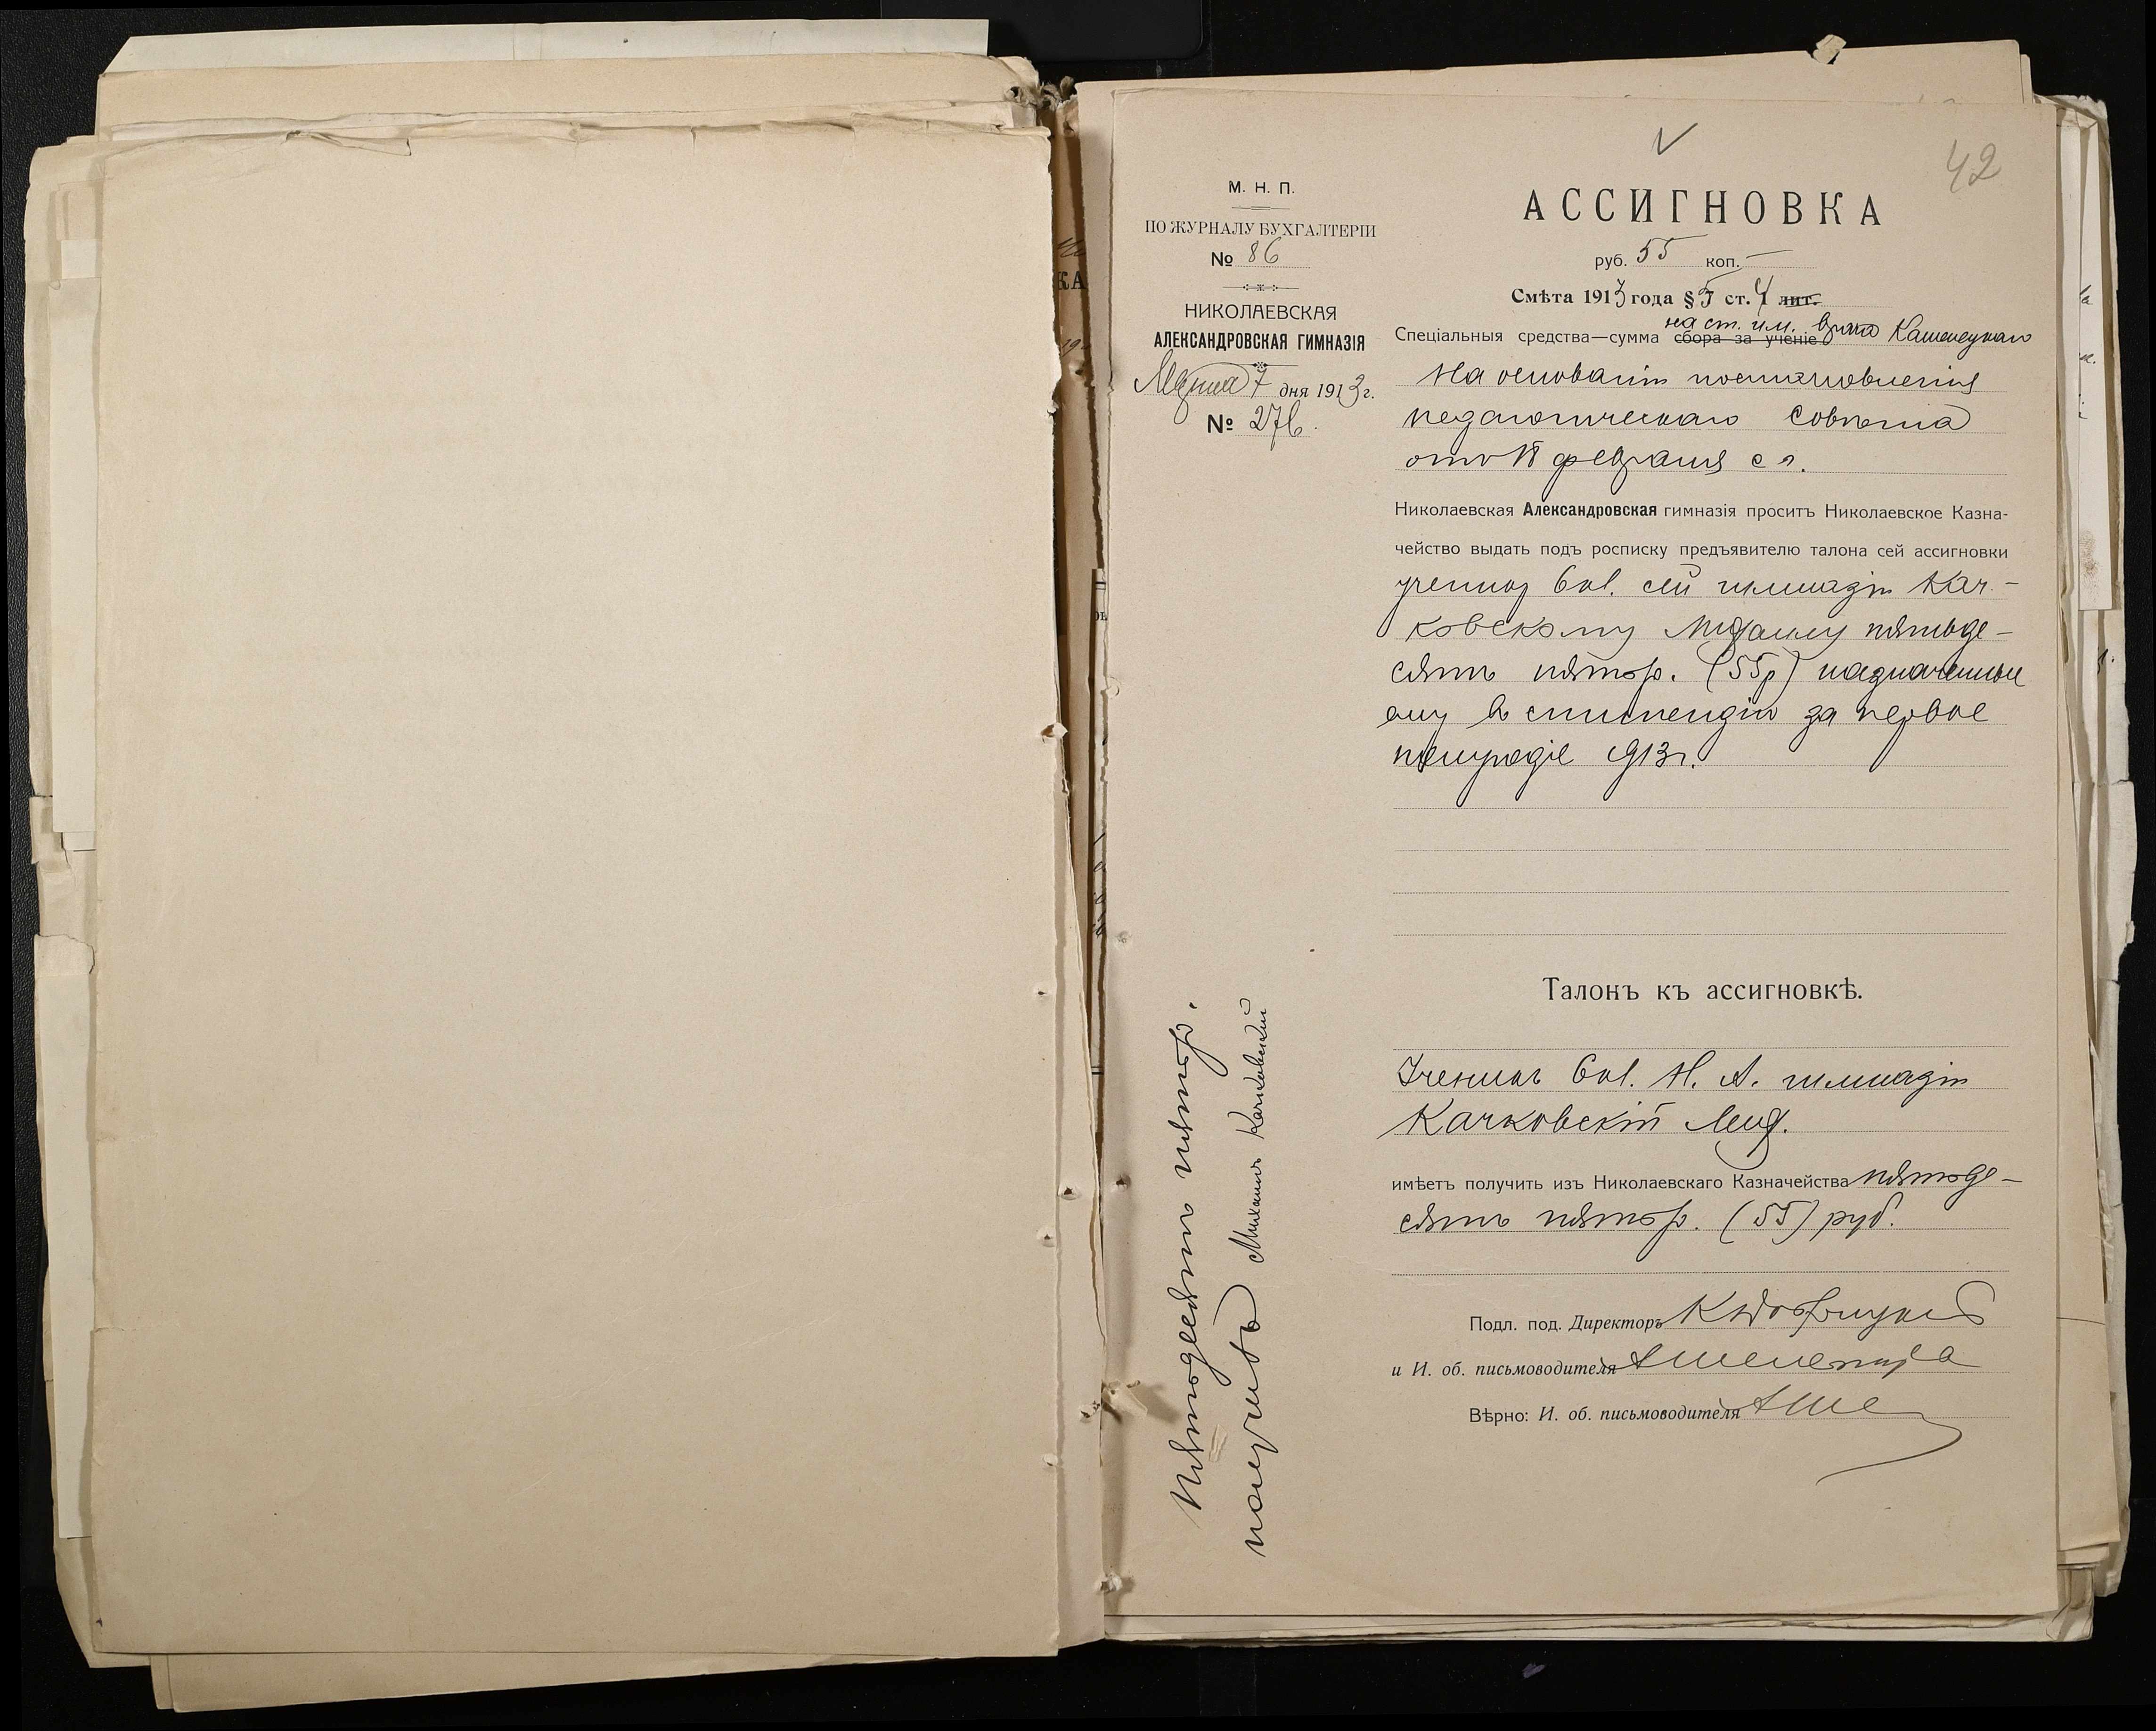 42
М. Н. П.
ПО ЖУРНАЛУ БУХГАЛТЕРІИ
№ 86
НИКОЛАЕВСКАЯ
АЛЕКСАНДРОВСКАЯ ГИМНАЗІЯ
Марта 7 дня 1913 г.
№ 276.
АССИГНОВКА
руб. 55 коп. —
Смѣта 1913 года § 5 ст. 4 лит.
на ст. им. врача Каменецкаго
Спеціальныя средства—сумма сбора за ученіе
На основаніи постановленія
педагогическаго Совѣта
отъ 18 февраля с г.
Николаевская Александровская гимназія проситъ Николаевское Казна-
чейство выдать подъ росписку предъявителю талона сей ассигновки
ученику 6 кл. сей гимназіи Кач-
ковскому Михаилу пятьде-
сятъ пять р. (55 р) назначенные
ему въ стипендію за первое
полугодіе 1913 г.
Талонъ къ ассигновкѣ.
Ученикъ 6 кл. Н. А. гимназіи
Качковскій Мих.
имѣетъ получить изъ Николаевскаго Казначейства пятьде-
сятъ пять р. (55) руб.
Подл. под. Директоръ
и И. об. письмоводителя
Вѣрно: И. об. письмоводителя
Пятьдесятъ пять р.
получилъ Михаилъ Качковскій